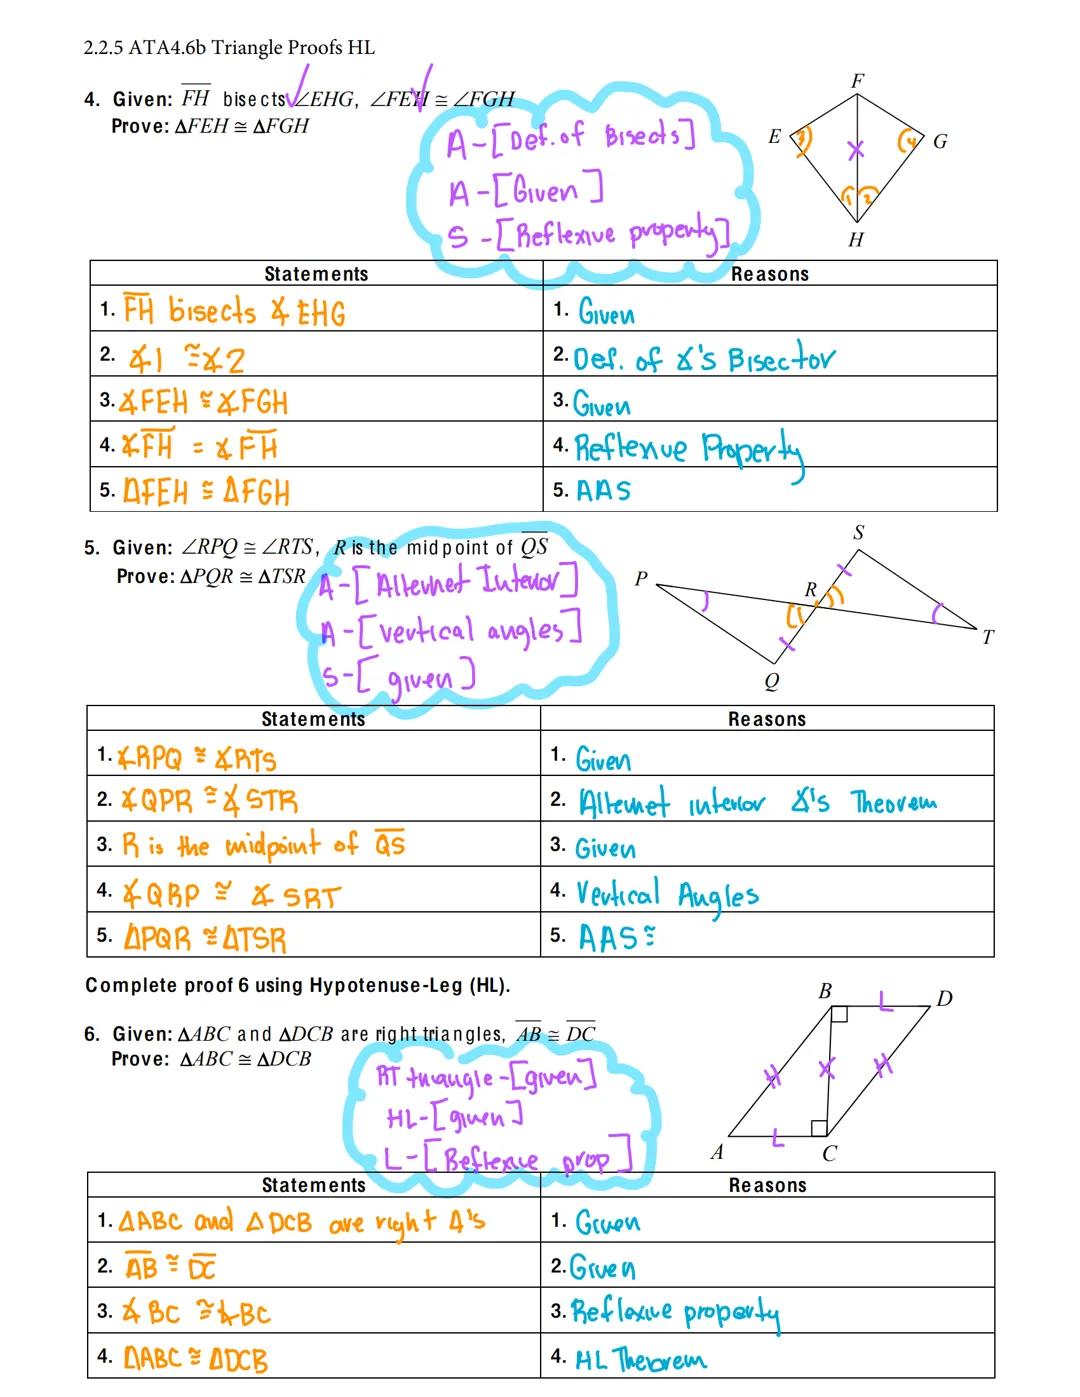 2.2.5 ATA4.6b Triangle Proofs HL
4. Given: FH bisects ∠EHG, ∠FEH ≅ ∠FGH
Prove: ΔFEH ≅ ΔFGH
A-[Def. of Bisects]
A-[Given]
S-[Reflexive property]
F
E
G
3
4
1
2
H
Statements
Reasons
1. FH bisects ∡ EHG
1. Given
2. ∡1 ≅ ∡2
2. Def. of ∡'s Bisector
3. ∡FEH ≅ ∡FGH
3. Given
4. ∡FH = ∡FH
4. Reflexive Property
5. ΔFEH ≅ ΔFGH
5. AAS
5. Given: ∠RPQ ≅ ∠RTS, R is the midpoint of QS
Prove: ΔPQR ≅ ΔTSR
A-[Alternet Interior]
A-[vertical angles]
S-[given]
S
P
R
T
Q
Statements
Reasons
1. ∡RPQ ≅ ∡RTS
1. Given
2. ∡QPR ≅ ∡STR
2. Alternet interior ∡'s Theorem
3. R is the midpoint of QS
3. Given
4. ∡QRP ≅ ∡ SRT
4. Vertical Angles
5. ΔPQR ≅ ΔTSR
5. AAS ≅
Complete proof 6 using Hypotenuse-Leg (HL).
6. Given: ΔABC and ΔDCB are right triangles, AB ≅ DC
Prove: ΔABC ≅ ΔDCB
RT triangle-[given]
HL-[given]
L-[Reflexive prop]
B
L
D
A
L
C
Statements
Reasons
1. ΔABC and ΔDCB are right Δ's
1. Given
2. AB ≅ DC
2. Given
3. ∡BC ≅ ∡BC
3. Reflexive property
4. ΔABC ≅ ΔDCB
4. HL Theorem